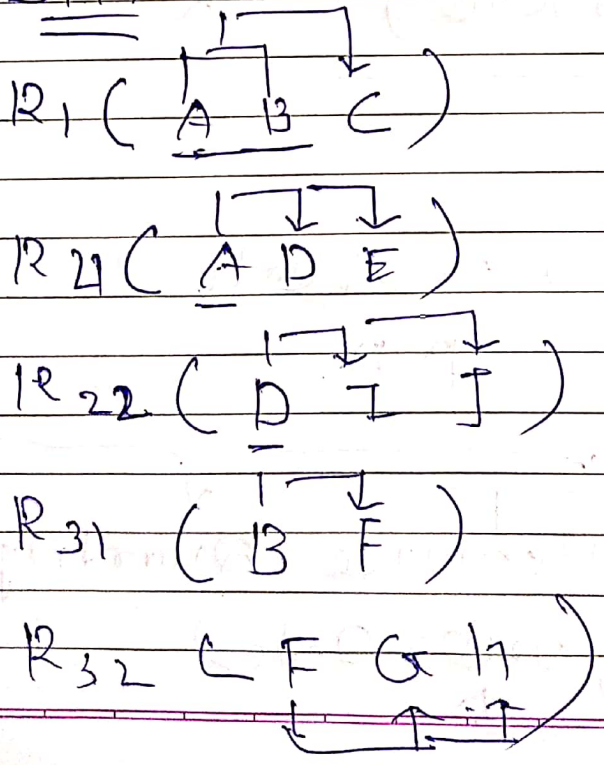 R1 ( A B C )
R21 ( A D E )
R22 ( D I J )
R31 ( B F )
R32 ( F G H )